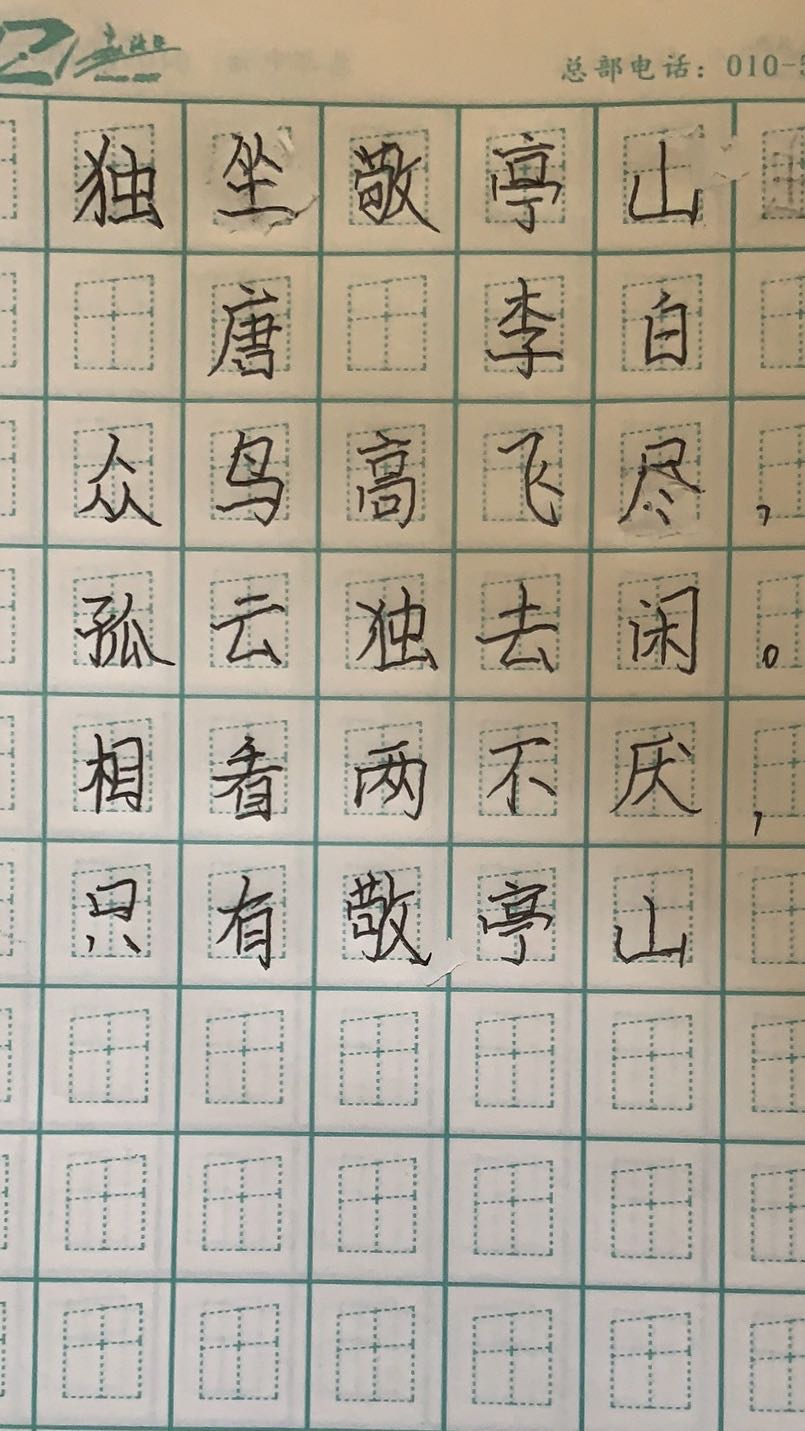 总部电话：010-
独坐敬亭山
唐 李白
众鸟高飞尽，
孤云独去闲。
相看两不厌，
只有敬亭山